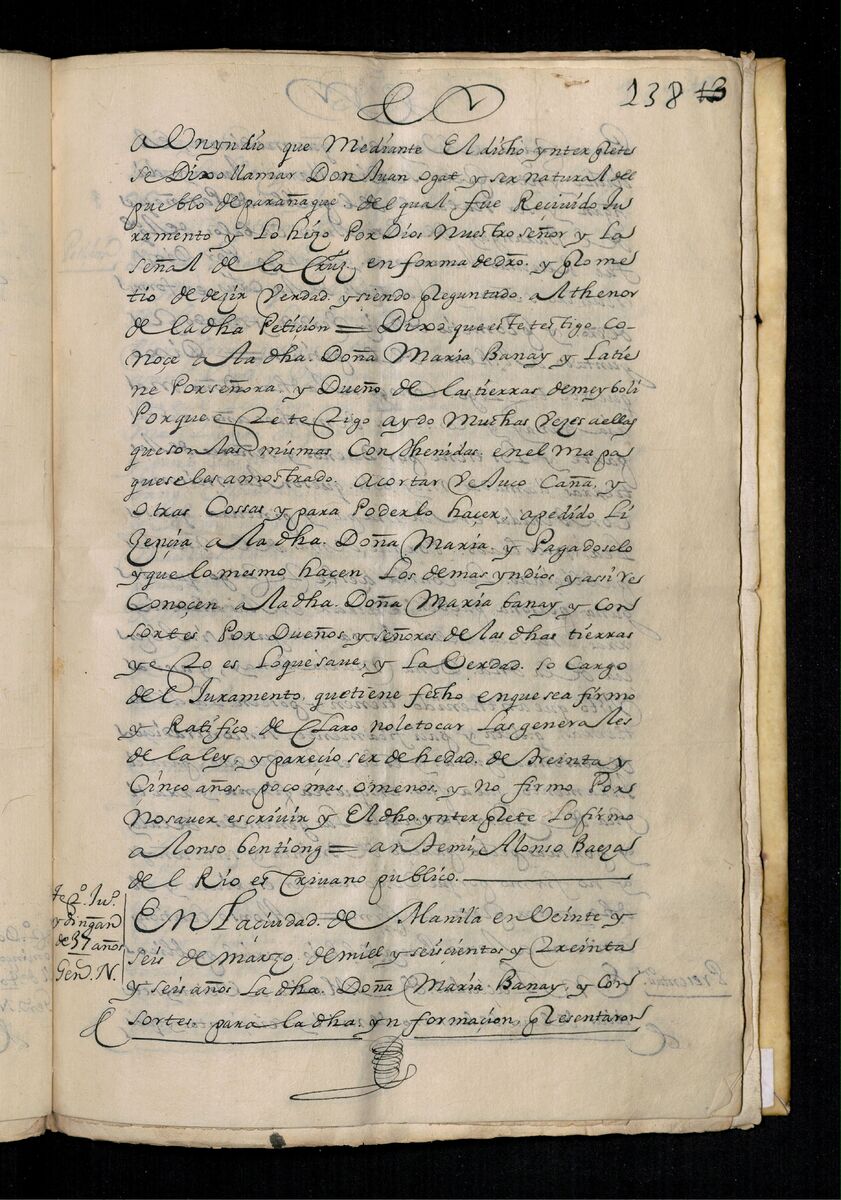 138 13
a Un yndio que Mediante El dicho ynterplete
se Dixo llamar Don Juan Ogat y ser natural del
pueblo de parañaque del qual fue Reciuido Ju
ramento y Lo hizo Por Dios Nuestro señor y La
señal de la Cruz en forma de dro. y plome
tio de dezir Verdad y siendo pleguntado a Lthenor
de la dha Peticion = Dixo que este testigo Co-
noçe a la dha. Doña Maria Banay y La tie
ne Por señora y Dueño de las tierras de meyboli
Porque este testigo aydo Muchas Vezes a ellas
que son las mismas Conthenidas en el mapa
que se le s amostrado. acortar Vejuco Caña, y
otras Cossas y para Poderlo hacer, apedido Li
zençia a la dha. Doña Maria y Pagadoselo
y que lo mesmo haçen Los demas yndios y assi res
Conoçen a la dha. Doña Maria banay y Con
sortes Por Dueños y señores de las dhas tierras
y esto es Lo que saue, y La Verdad. so Cargo
del Juramento que tiene fecho en que sea firmo
y Ratifico de Claro no le tocar Las generales
de la ley, y parecio ser de hedad de treinta y
Cinco años poco mas o menos y no firmo Por
No sauer escriuir y El dho ynterplete Lo firmo
a lonso bentiong = antemi, Alonso Baeza
del Rio esCriuano publico.
te°. Ju°.
ydingan
de 37 años
Gen. N.
EN La ciudad de Manila en Veinte y
seis de marzo de miel y seiscientos y treinta
y seis años La dha. Doña Maria Banay, y Con
sortes para la dha yn formaçion, plesentaron